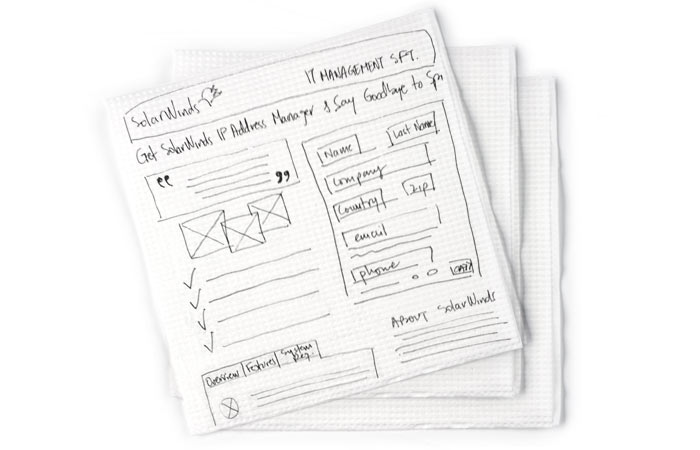 SolarWinds
IT MANAGEMENT SFT.
Get SolarWinds IP Address Manager & Say Goodbye to
“ ”
Name
Last Name
Company
Country
Zip
email
phone
ABOUT SolarWinds
Overview
Features
System Req.